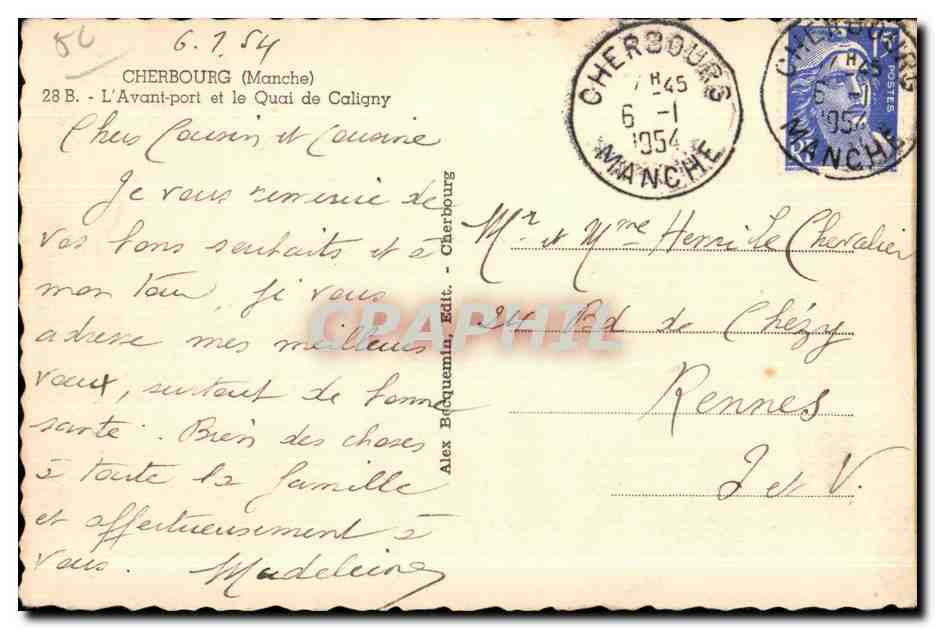 6.1.54
CHERBOURG (Manche)
28 B. - L'Avant-port et le Quai de Caligny
Chers Cousin et Cousine
Je vous remercie de
vos bons souhaits et à
mon tour, je vous
adresse mes meilleurs
vœux, surtout de bonne
santé. Bien des choses
à toute la famille
et affectueusement à
vous. Madeleine
Alex Becquemin, Edit. - Cherbourg
CHERBOURG
7H45
6 -1
1954
MANCHE
CHERBOURG
7H45
6 -1
1954
MANCHE
15F
POSTES
Mr et Mme Henri le Chevalier
24 Bd de Chézy
Rennes
I et V.
CPAPHIL